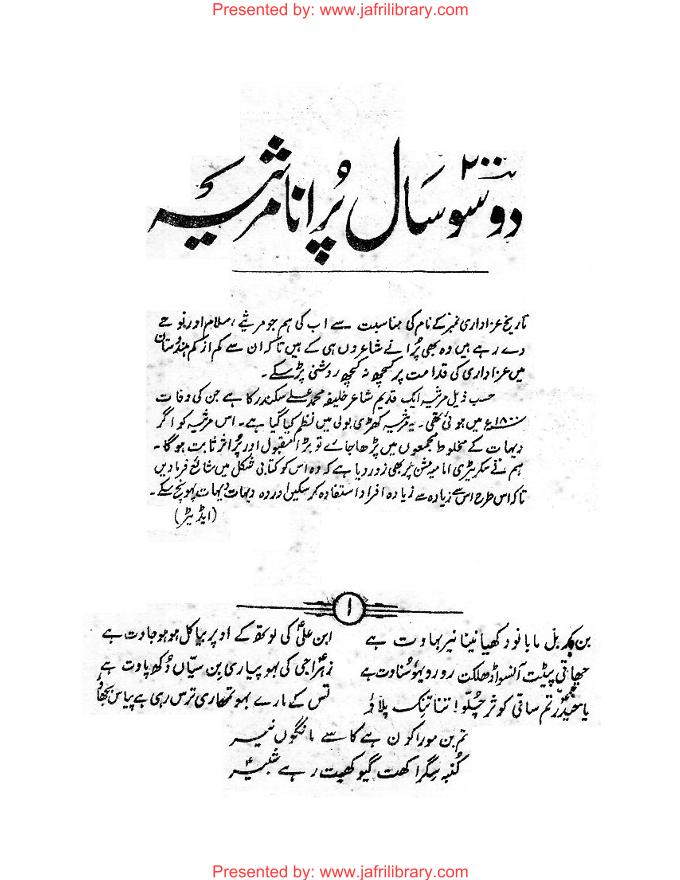 Presented by: www.jafrilibrary.com
۲۰۰
دو سو سال پُرانا مرثیہ
تاریخ عزاداری نمبر کے نام کی مناسبت سے اب کی ہم جو مرثیے ، سلام اور نوحے
دے رہے ہیں وہ بھی پُرانے شاعروں ہی کے ہیں تاکہ ان سے کم از کم ہندوستان
میں عزاداری کی قدامت پر کچھ نہ کچھ روشنی پڑ سکے۔
حسب ذیل مرثیہ ایک قدیم شاعر خلیفہ محمد علی سکندر کا ہے جن کی وفات
۱۸۰۰ء میں ہوئی تھی۔ یہ مرثیہ کھڑی بولی میں نظم کیا گیا ہے۔ اس مرثیہ کو اگر
دیہات کے مخلوط مجمعوں میں پڑھا جائے تو بڑا مقبول اور پُراثر ثابت ہوگا۔
ہم نے سکریٹری امامیہ مشن پر بھی زور دیا ہے کہ وہ اس کو کتابی شکل میں شائع فرما دیں
تاکہ اس طرح اس سے زیادہ سے زیادہ افراد استفادہ کر سکیں اور وہ دیہات دیہات پہونچ سکے۔
(ایڈیٹر)
۱
بن بل مابانو دکھیا نینا نیر بہاوت ہے
ابن علیؑ کی لوتھ کے اوپر بیاکل ہو ہو جاوت ہے
چھاتی پیٹت آنسو ڈھلکت رو رو بہو سناوت ہے
زہراؑ جی کی بہو پیاری بن سیّاں دُکھ پاوت ہے
یا حیدرؑ تم ساقی کوثر چلّو! اتنا تنک پلاؤ
تس کے مارے بہو تمھاری ترس رہی ہے پیاس بجھاؤ
تم بن مورا کون ہے کا سے مانگوں نیر
کُنبہ سگرا کھت گیو کھیت رہے شبیرؑ
Presented by: www.jafrilibrary.com